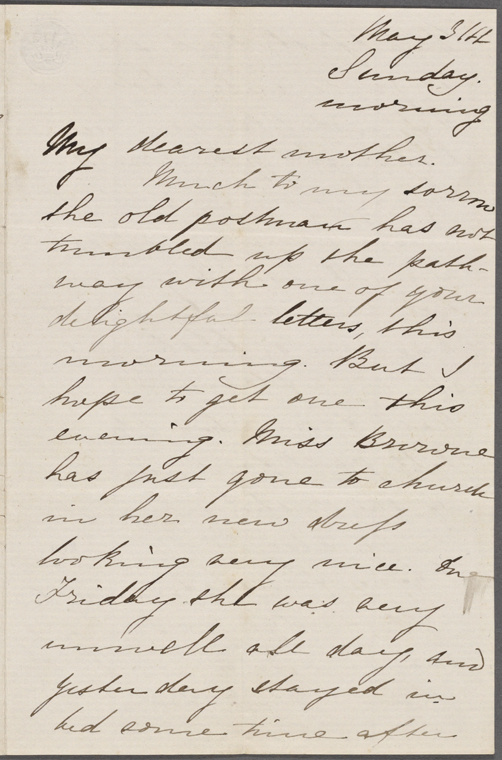 May 31st
Sunday.
morning
My dearest mother.
Much to my sorrow
the old postman has not
tumbled up the path-
way with one of your
delightful letters, this
morning. But I
hope to get one this
evening. Miss Browne
has just gone to church
in her new dress
looking very nice. On
Friday she was very
unwell all day, and
yesterday stayed in
bed some time after